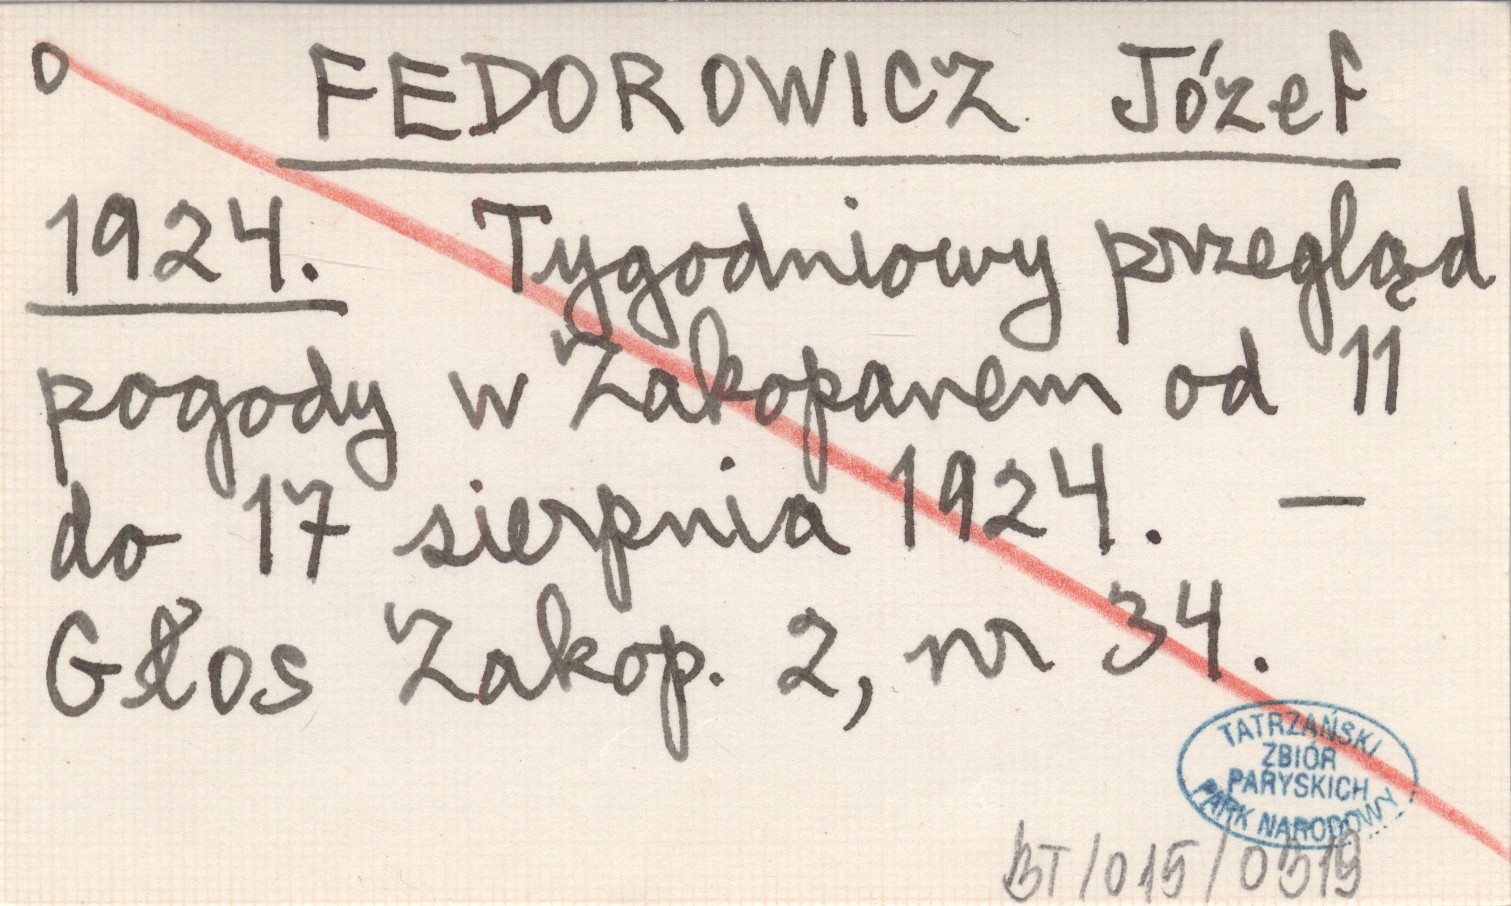 o FEDOROWICZ Józef
1924. Tygodniowy przegląd
pogody w Zakopanem od 11
do 17 sierpnia 1924. —
Głos Zakop. 2, nr 34.
TATRZAŃSKI
ZBIÓR
PARYSKICH
PARK NARODOWY
BT/015/0519